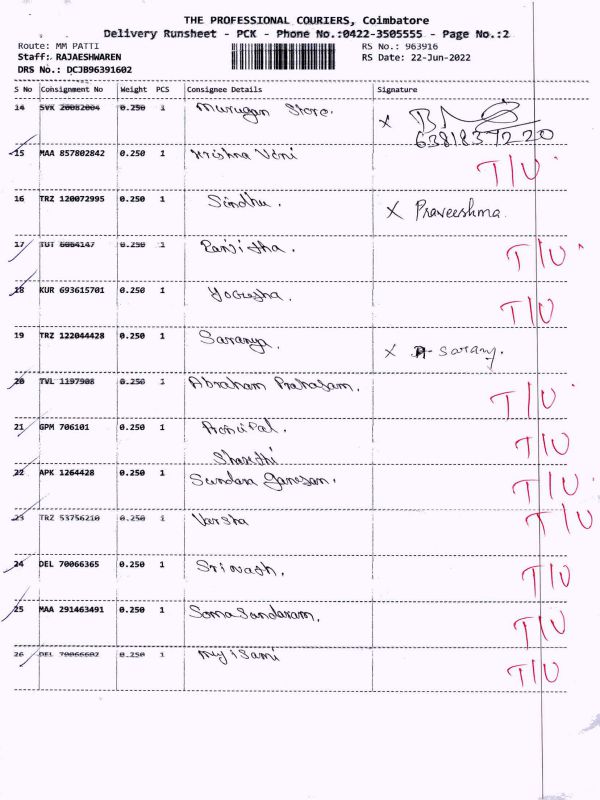 THE PROFESSIONAL COURIERS, Coimbatore
Delivery Runsheet - PCK - Phone No.:0422-3505555 - Page No.:2
Route: MM PATTI RS No.: 963916
Staff: RAJAESHWAREN RS Date: 22-Jun-2022
DRS No.: DCJB96391602
S No Consignment No Weight PCS Consignee Details Signature
14 SVK 20082004 0.250 1 Murugan Store. X
6381839220
15 MAA 857802842 0.250 1 Krishna Veni T/U
16 TRZ 120072995 0.250 1 Sindhu. X Praveeshma.
17 TUT 6084147 0.250 1 Ranjitha. T/U
18 KUR 693615701 0.250 1 Yogesha. T/U
19 TRZ 122044428 0.250 1 Saranya. X Sarany.
20 TVL 1197908 0.250 1 Abraham Prakasam. T/U
21 GPM 706101 0.250 1 Principal. T/U
Shakthi
22 APK 1264428 0.250 1 Sundara Ganesan. T/U
23 TRZ 53756210 0.250 1 Varsha T/U
24 DEL 70066365 0.250 1 Srinath. T/U
25 MAA 291463491 0.250 1 Somasundaram. T/U
26 DEL 70066602 0.250 1 T/U